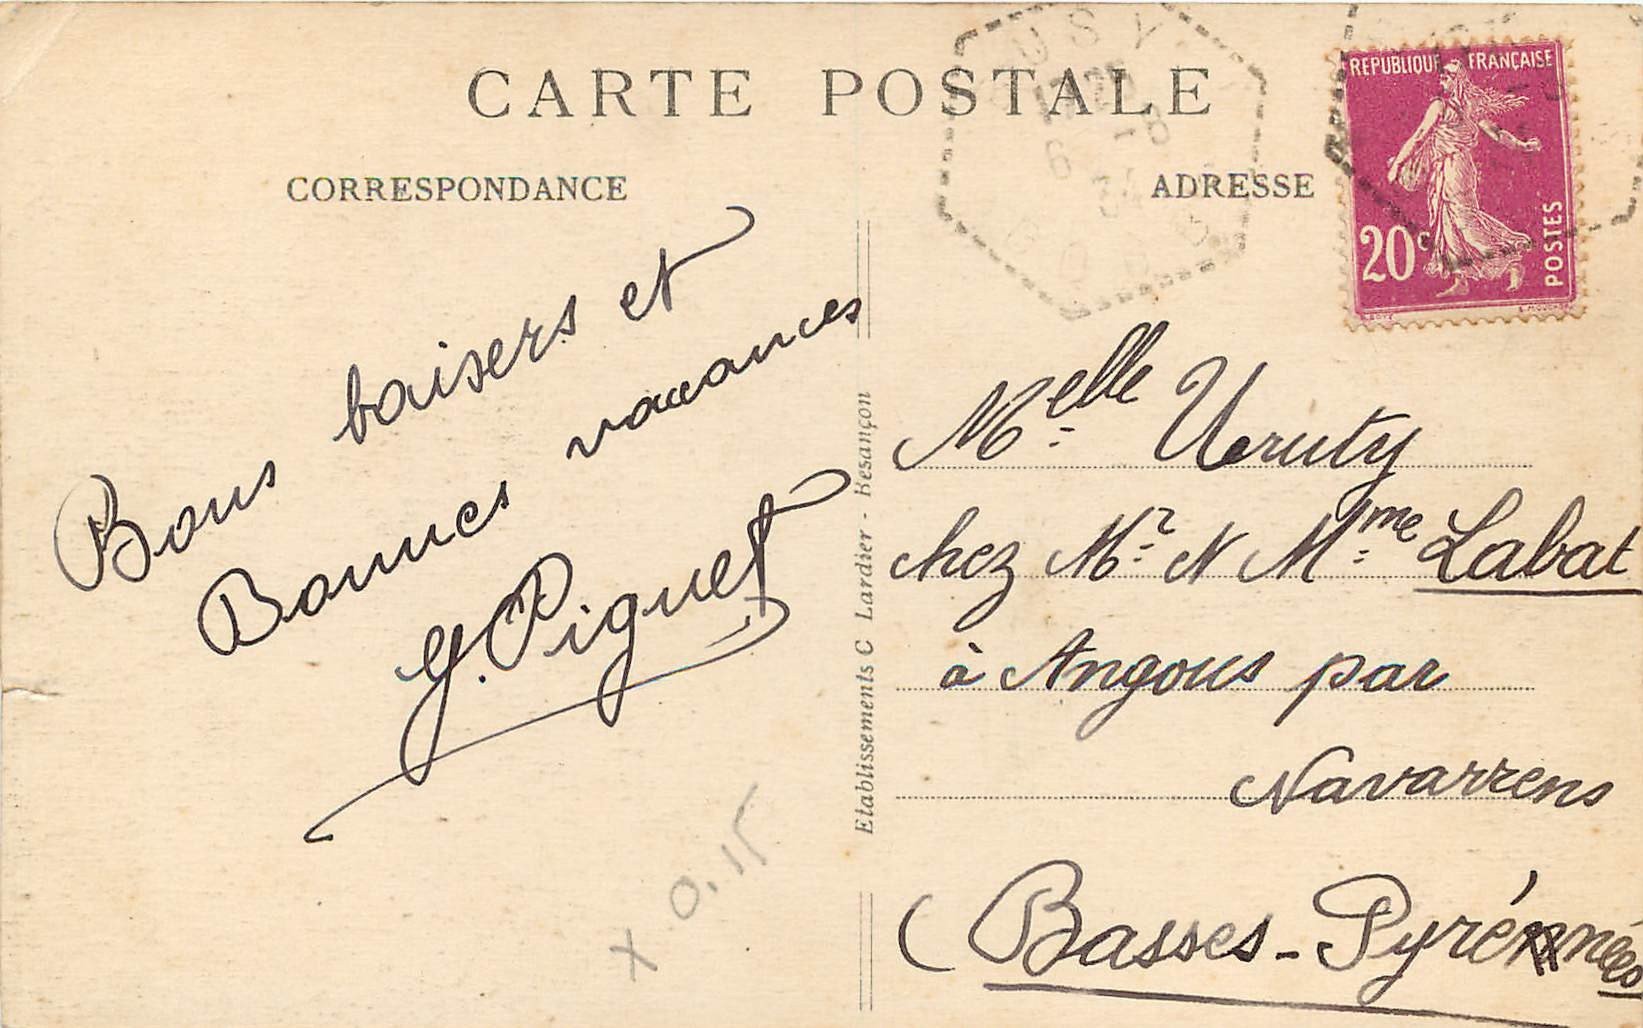 CARTE POSTALE
CORRESPONDANCE
ADRESSE
REPUBLIQUE FRANÇAISE
20c
POSTES
Bons baisers et
Bonnes vacances
G. Piguet
Etablissements C Lardier - Besançon
Melle Uruty
chez Mr et Mme Labat
à Angous par
Navarrens
(Basses-Pyrénées
x 0.15